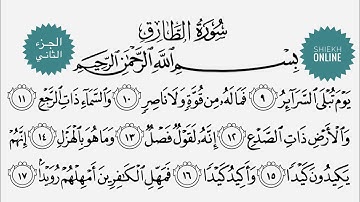 سُورَةُ الطَّارِقِ
الجزء
الثاني
SHIEKH
ONLINE
بِسْمِ اللَّهِ الرَّحْمَٰنِ الرَّحِيمِ
يَوْمَ تُبْلَى السَّرَائِرُ ٩ فَمَا لَهُ مِن قُوَّةٍ وَلَا نَاصِرٍ ١٠ وَالسَّمَاءِ ذَاتِ الرَّجْعِ ١١
وَالْأَرْضِ ذَاتِ الصَّدْعِ ١٢ إِنَّهُ لَقَوْلٌ فَصْلٌ ١٣ وَمَا هُوَ بِالْهَزْلِ ١٤ إِنَّهُمْ
يَكِيدُونَ كَيْدًا ١٥ وَأَكِيدُ كَيْدًا ١٦ فَمَهِّلِ الْكَافِرِينَ أَمْهِلْهُمْ رُوَيْدًا ١٧